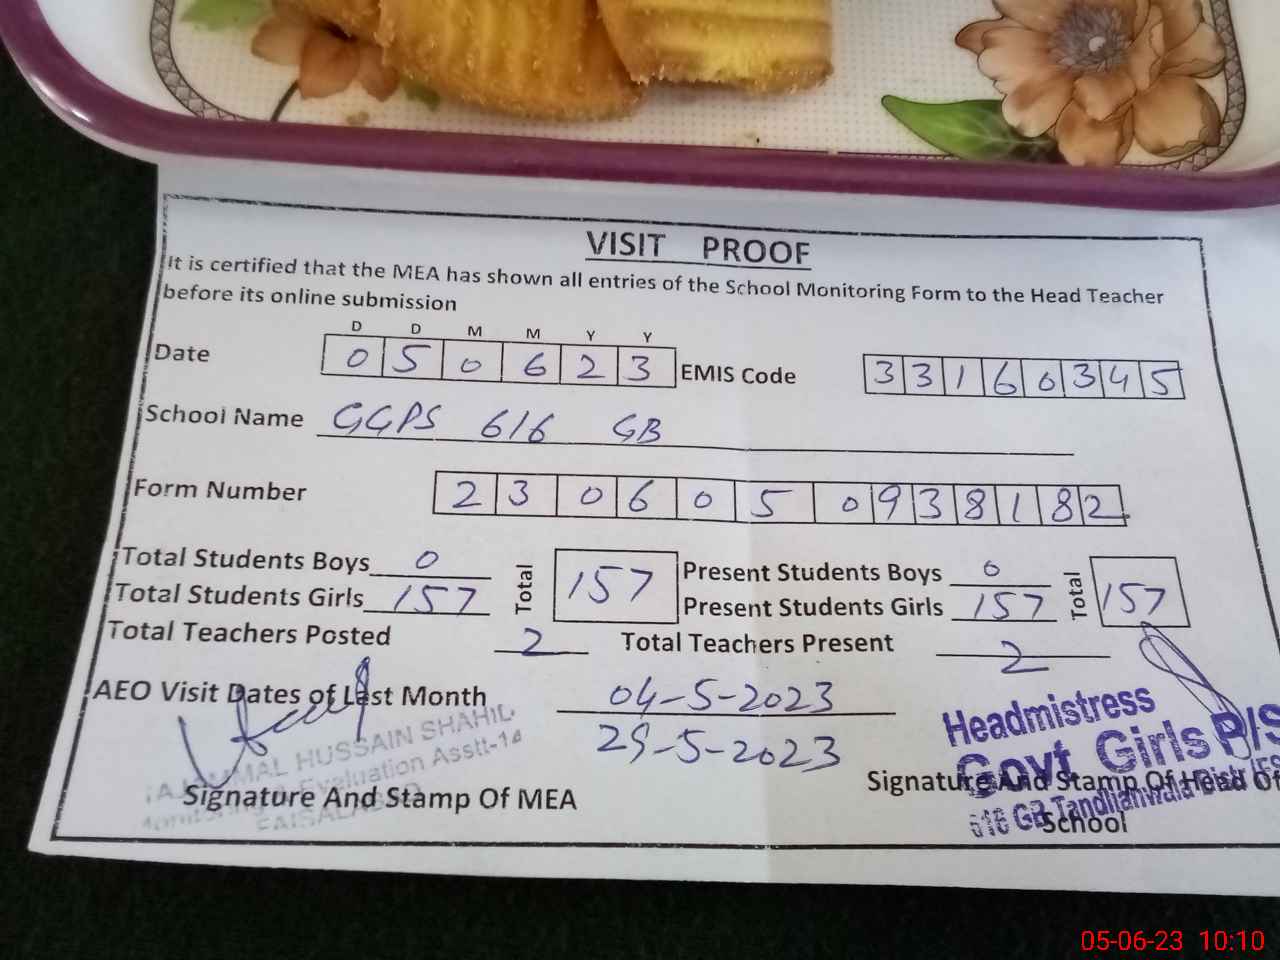 VISIT PROOF
It is certified that the MEA has shown all entries of the School Monitoring Form to the Head Teacher
before its online submission
D D M M Y Y
Date 0 5 0 6 2 3 EMIS Code 3 3 1 6 0 3 4 5
School Name GGPS 616 GB
Form Number 2 3 0 6 0 5 0 9 3 8 1 8 2
Total Students Boys 0 Total 157 Present Students Boys 0 Total 157
Total Students Girls 157 Present Students Girls 157
Total Teachers Posted 2 Total Teachers Present 2
AEO Visit Dates of Last Month 04-5-2023
29-5-2023
HUSSAIN SHAHID
Evaluation Asstt-14
FAISALABAD
Signature And Stamp Of MEA
Headmistress
Govt Girls P/S
616 GB Tandlianwala Distt
Signature And Stamp Of Head Of
School
05-06-23 10:10